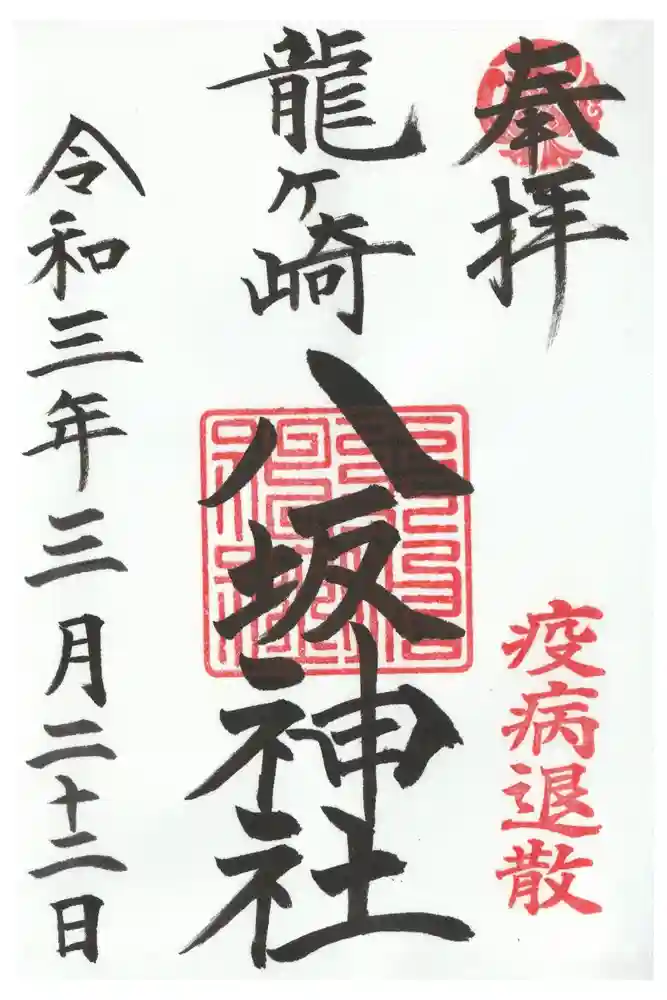 奉拝
疫病退散
龍ヶ崎
八坂神社
令和三年三月二十二日